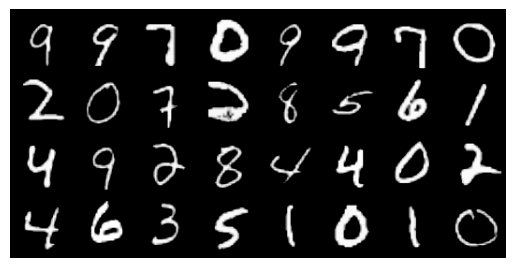 9 9 7 0 9 9 7 0
2 0 7 2 8 5 6 1
4 9 2 8 4 4 0 2
4 6 3 5 1 0 1 0